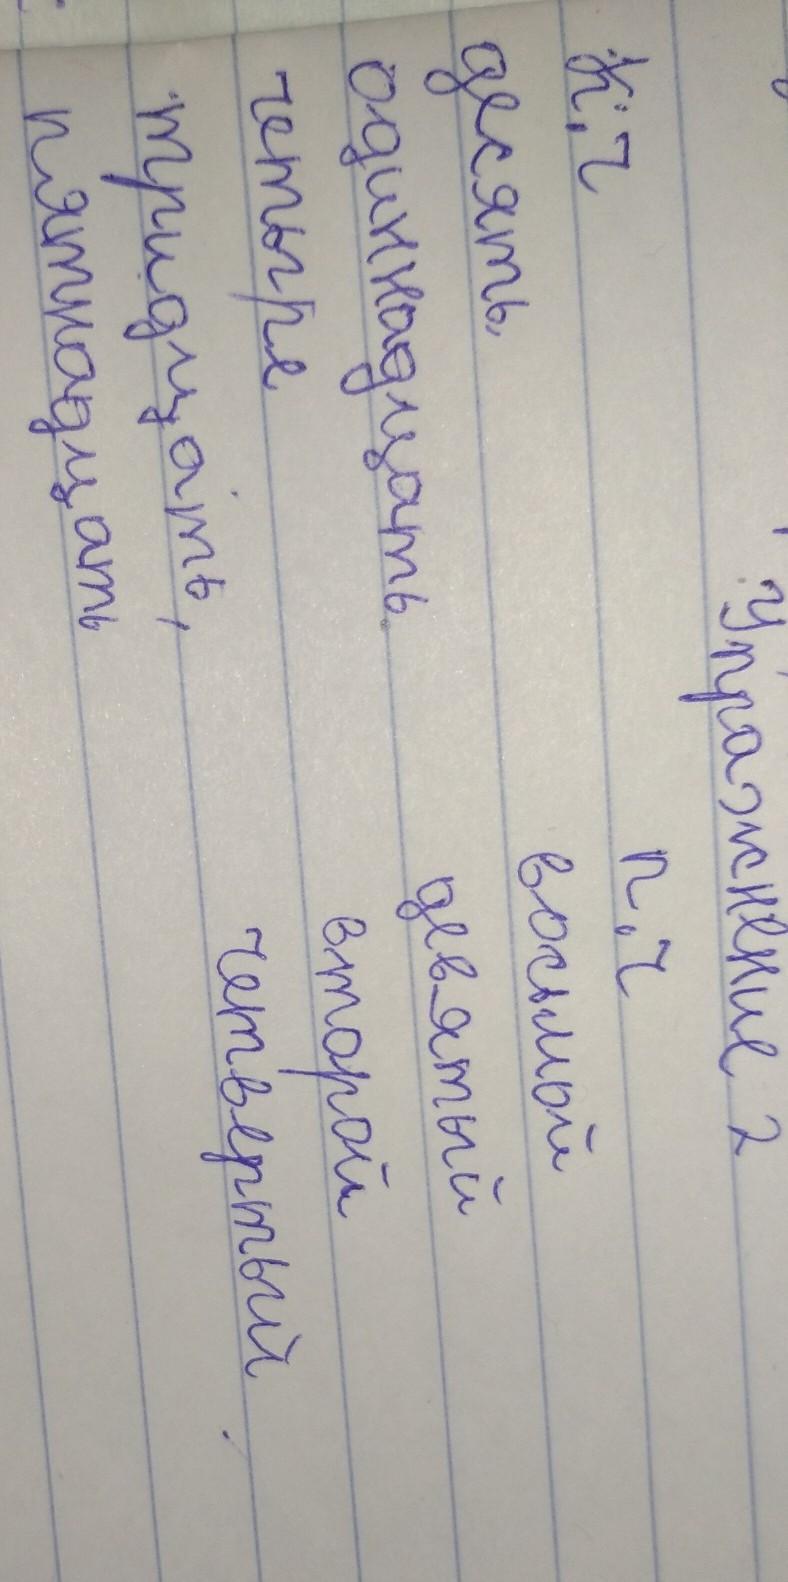 Упражнение 2
к.ч п.ч
десять восьмой
одиннадцать девятый
четыре второй
тридцать, четвертый
пятнадцать